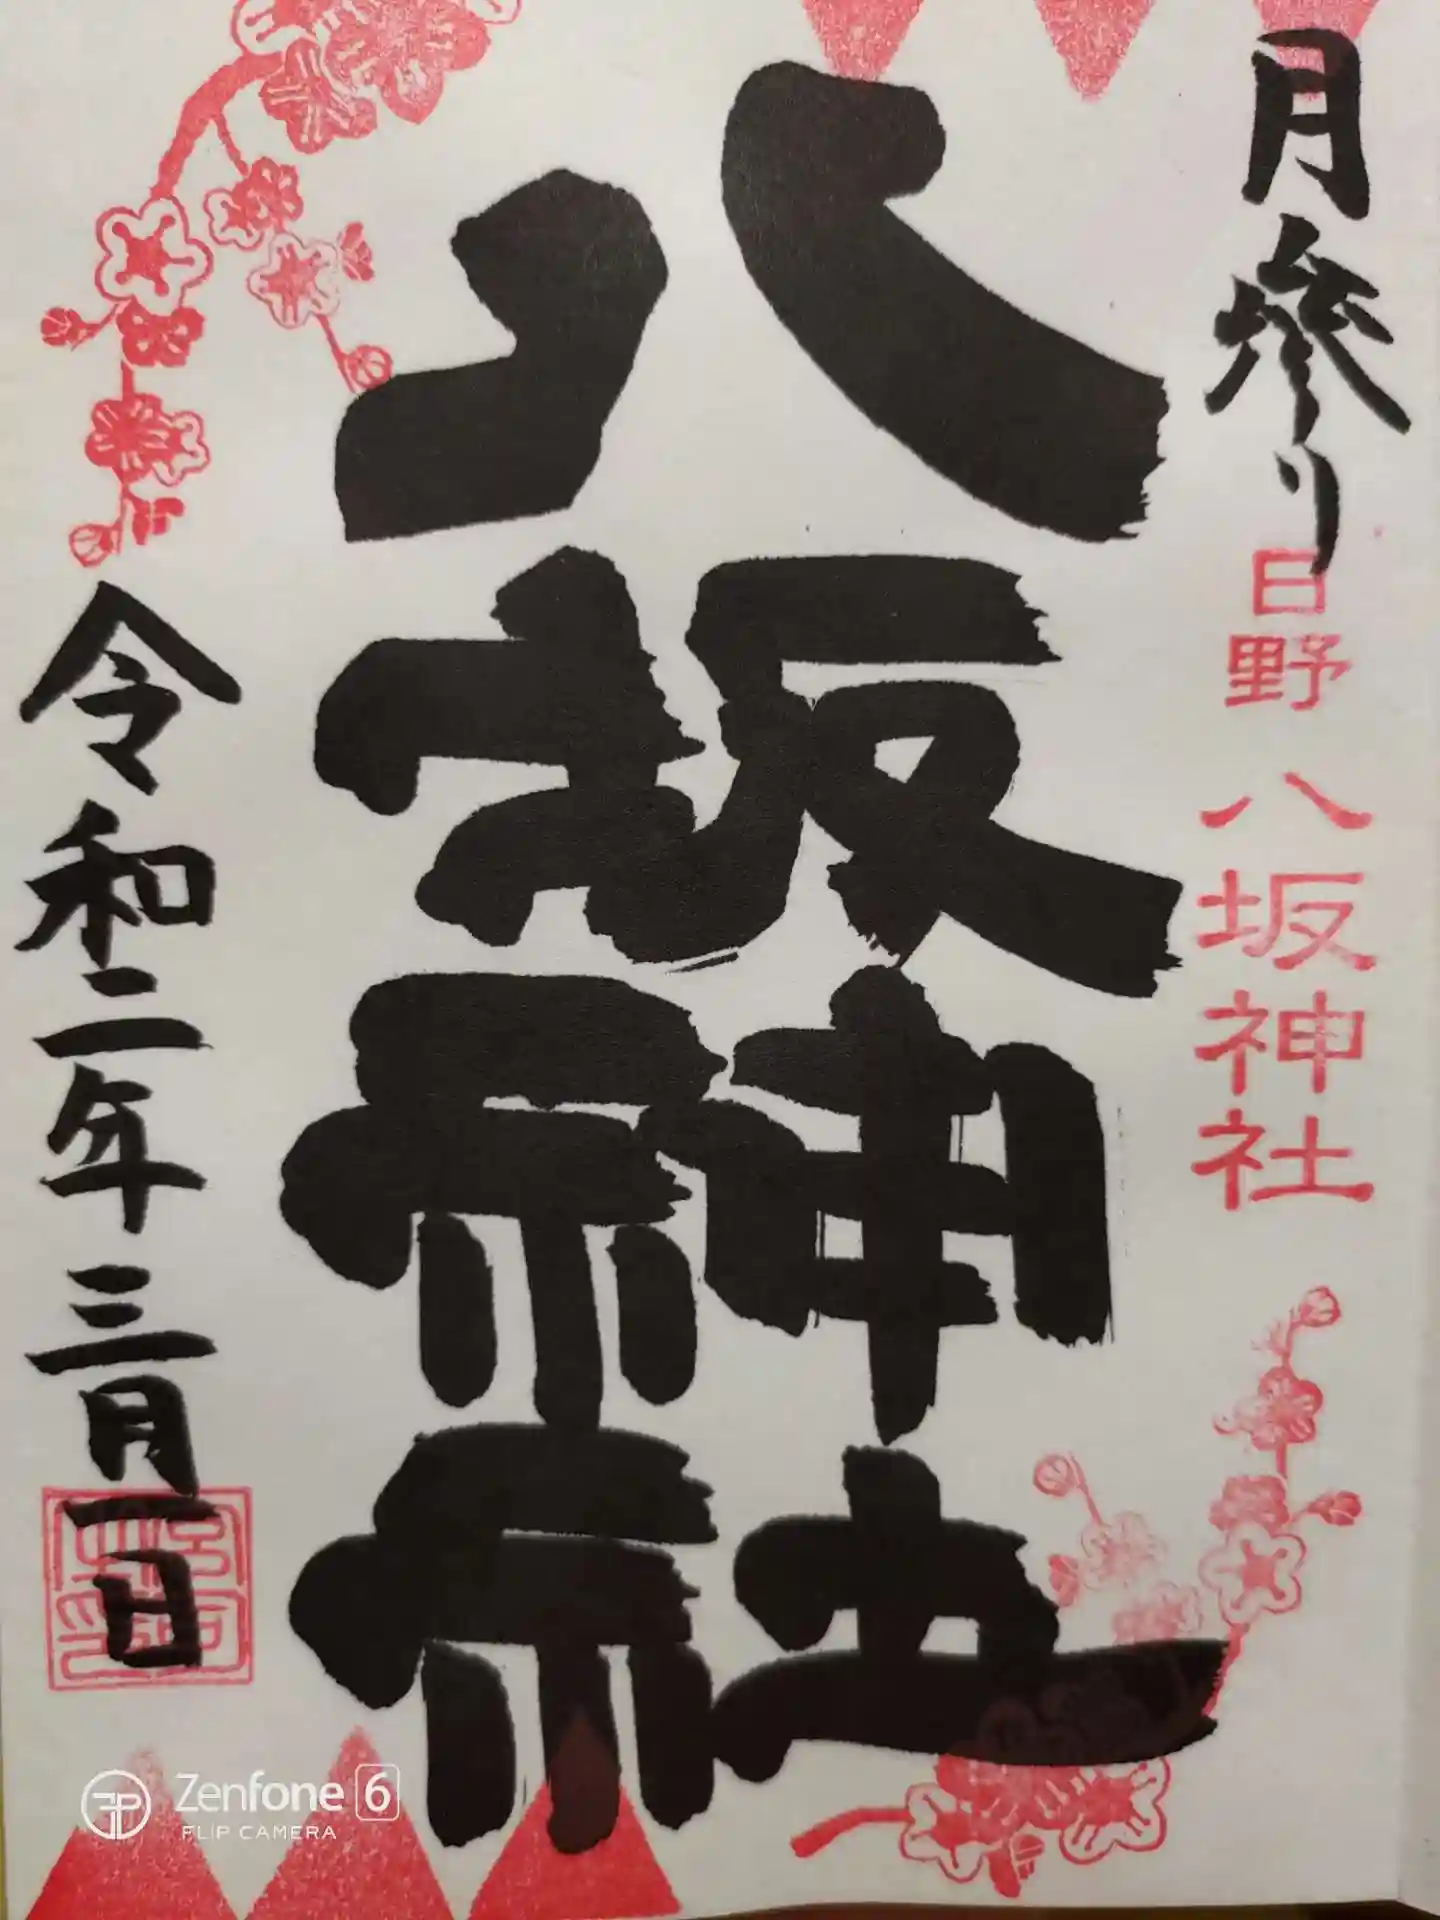 月参り
日野
八坂神社
八坂神社
令和二年三月一日
Zenfone 6
FLIP CAMERA